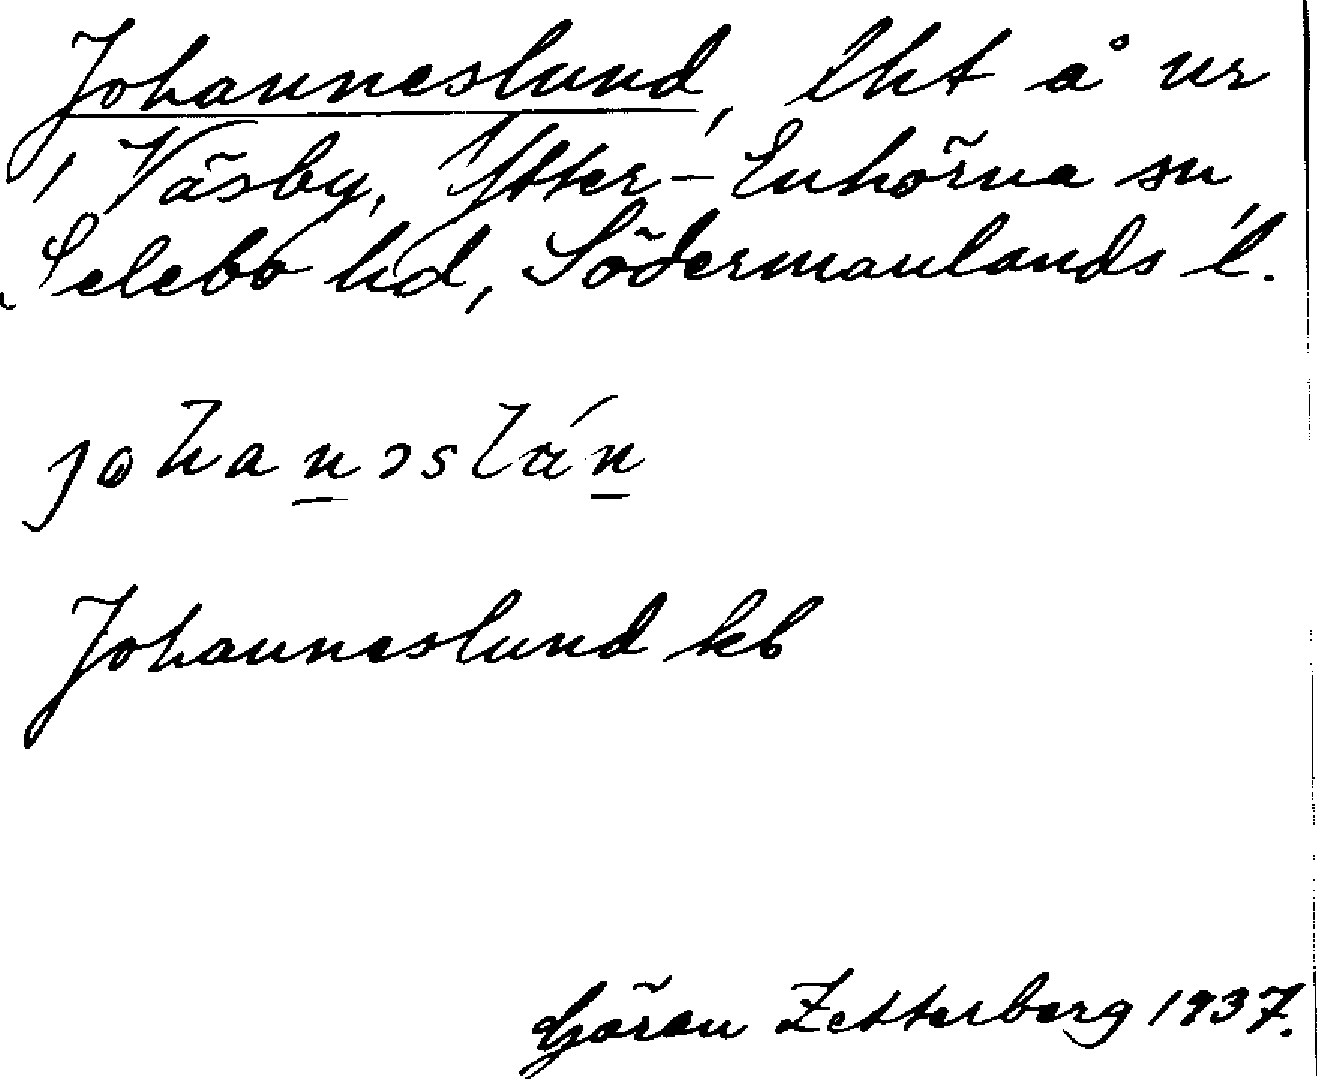 Johanneslund, lht å nr
1 Väsby, Ytter-Enhörna sn,
Selebo hd, Södermanlands l.
johanɔslán
Johanneslund kb
Göran Zetterberg 1937.